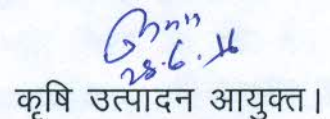 28.6.16
कृषि उत्पादन आयुक्त।